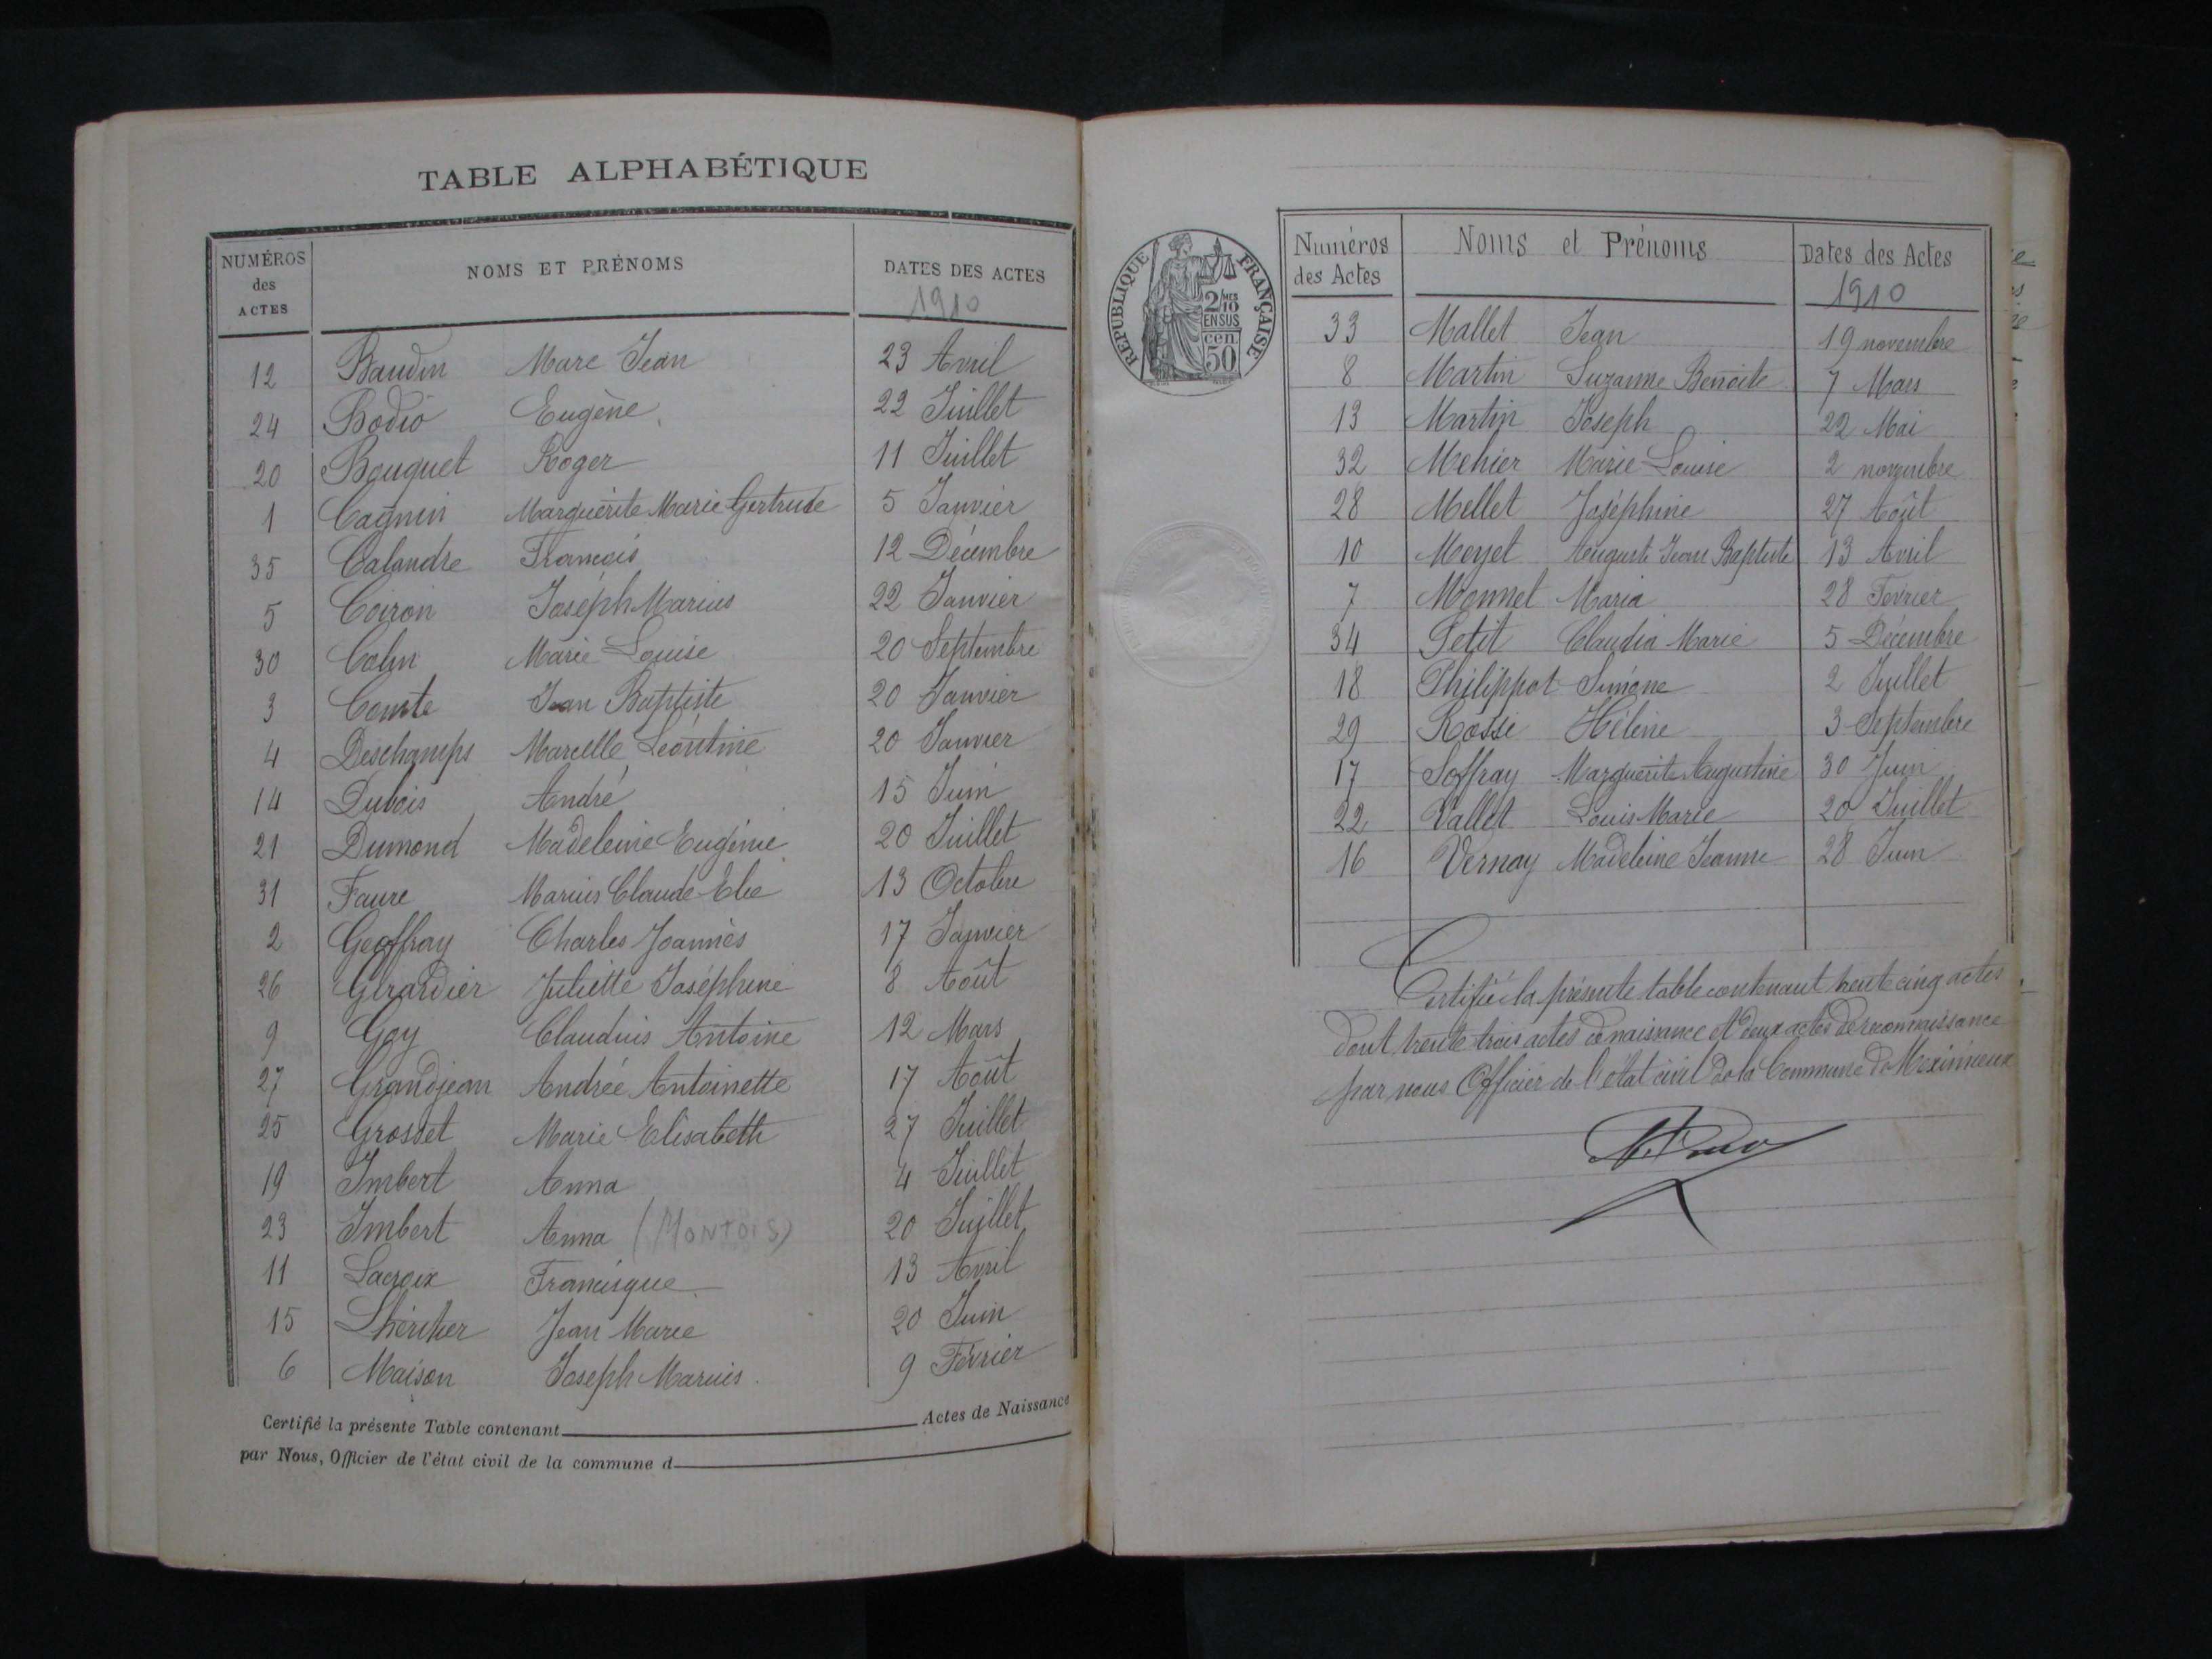 TABLE ALPHABÉTIQUE
NUMÉROS des ACTES NOMS ET PRÉNOMS DATES DES ACTES
1910
12 Baudin Marc Jean 23 Avril
24 Bodio Eugène 22 Juillet
20 Bouquet Roger 11 Juillet
1 Cagnin Marguerite Marie Gertrude 5 Janvier
35 Calandre François 12 Décembre
5 Coiron Joseph Marius 22 Janvier
30 Colin Marie Louise 20 Septembre
3 Comte Jean Baptiste 20 Janvier
4 Deschamps Marcelle Léontine 20 Janvier
14 Dubois André 15 Juin
21 Dumond Madeleine Eugénie 20 Juillet
31 Faure Marius Claude Elie 13 Octobre
2 Geoffray Charles Joannès 17 Janvier
26 Girardier Juliette Joséphine 8 Août
9 Goy Claudius Antoine 12 Mars
27 Grandjean Andrée Antoinette 17 Août
25 Grosset Marie Elisabeth 27 Juillet
19 Imbert Anna 4 Juillet
23 Imbert Anna (MONTOIS) 20 Juillet
11 Lacroix Francisque 13 Avril
15 Lhéritier Jean Marie 20 Juin
6 Maison Joseph Marius. 9 Février
Certifié la présente Table contenant Actes de Naissance
par Nous, Officier de l'état civil de la commune d
REPUBLIQUE FRANÇAISE
2/10 MES
EN SUS
cen.
50
Numéros des Actes Noms et Prénoms Dates des Actes
1910
33 Mallet Jean 19 novembre
8 Martin Suzanne Benoite 7 Mars
13 Martin Joseph 22 Mai
32 Mehier Marie Louise 2 novembre
28 Mellet Joséphine 27 Août
10 Meyet Auguste Jean Baptiste 13 Avril
7 Monnet Maria 28 Février
34 Petit Claudia Marie 5 Décembre
18 Philippot Simone 2 Juillet
29 Rossi Hélène 3 Septembre
17 Soffray Marguerite Augustine 30 Juin
22 Vallet Louis Marie 20 Juillet
16 Vernay Madeleine Jeanne 28 Juin
Certifié la présente table contenant trente cinq actes
dont trente trois actes de naissance et deux actes de reconnaissance
par nous Officier de l'état civil de la Commune de Meximieux